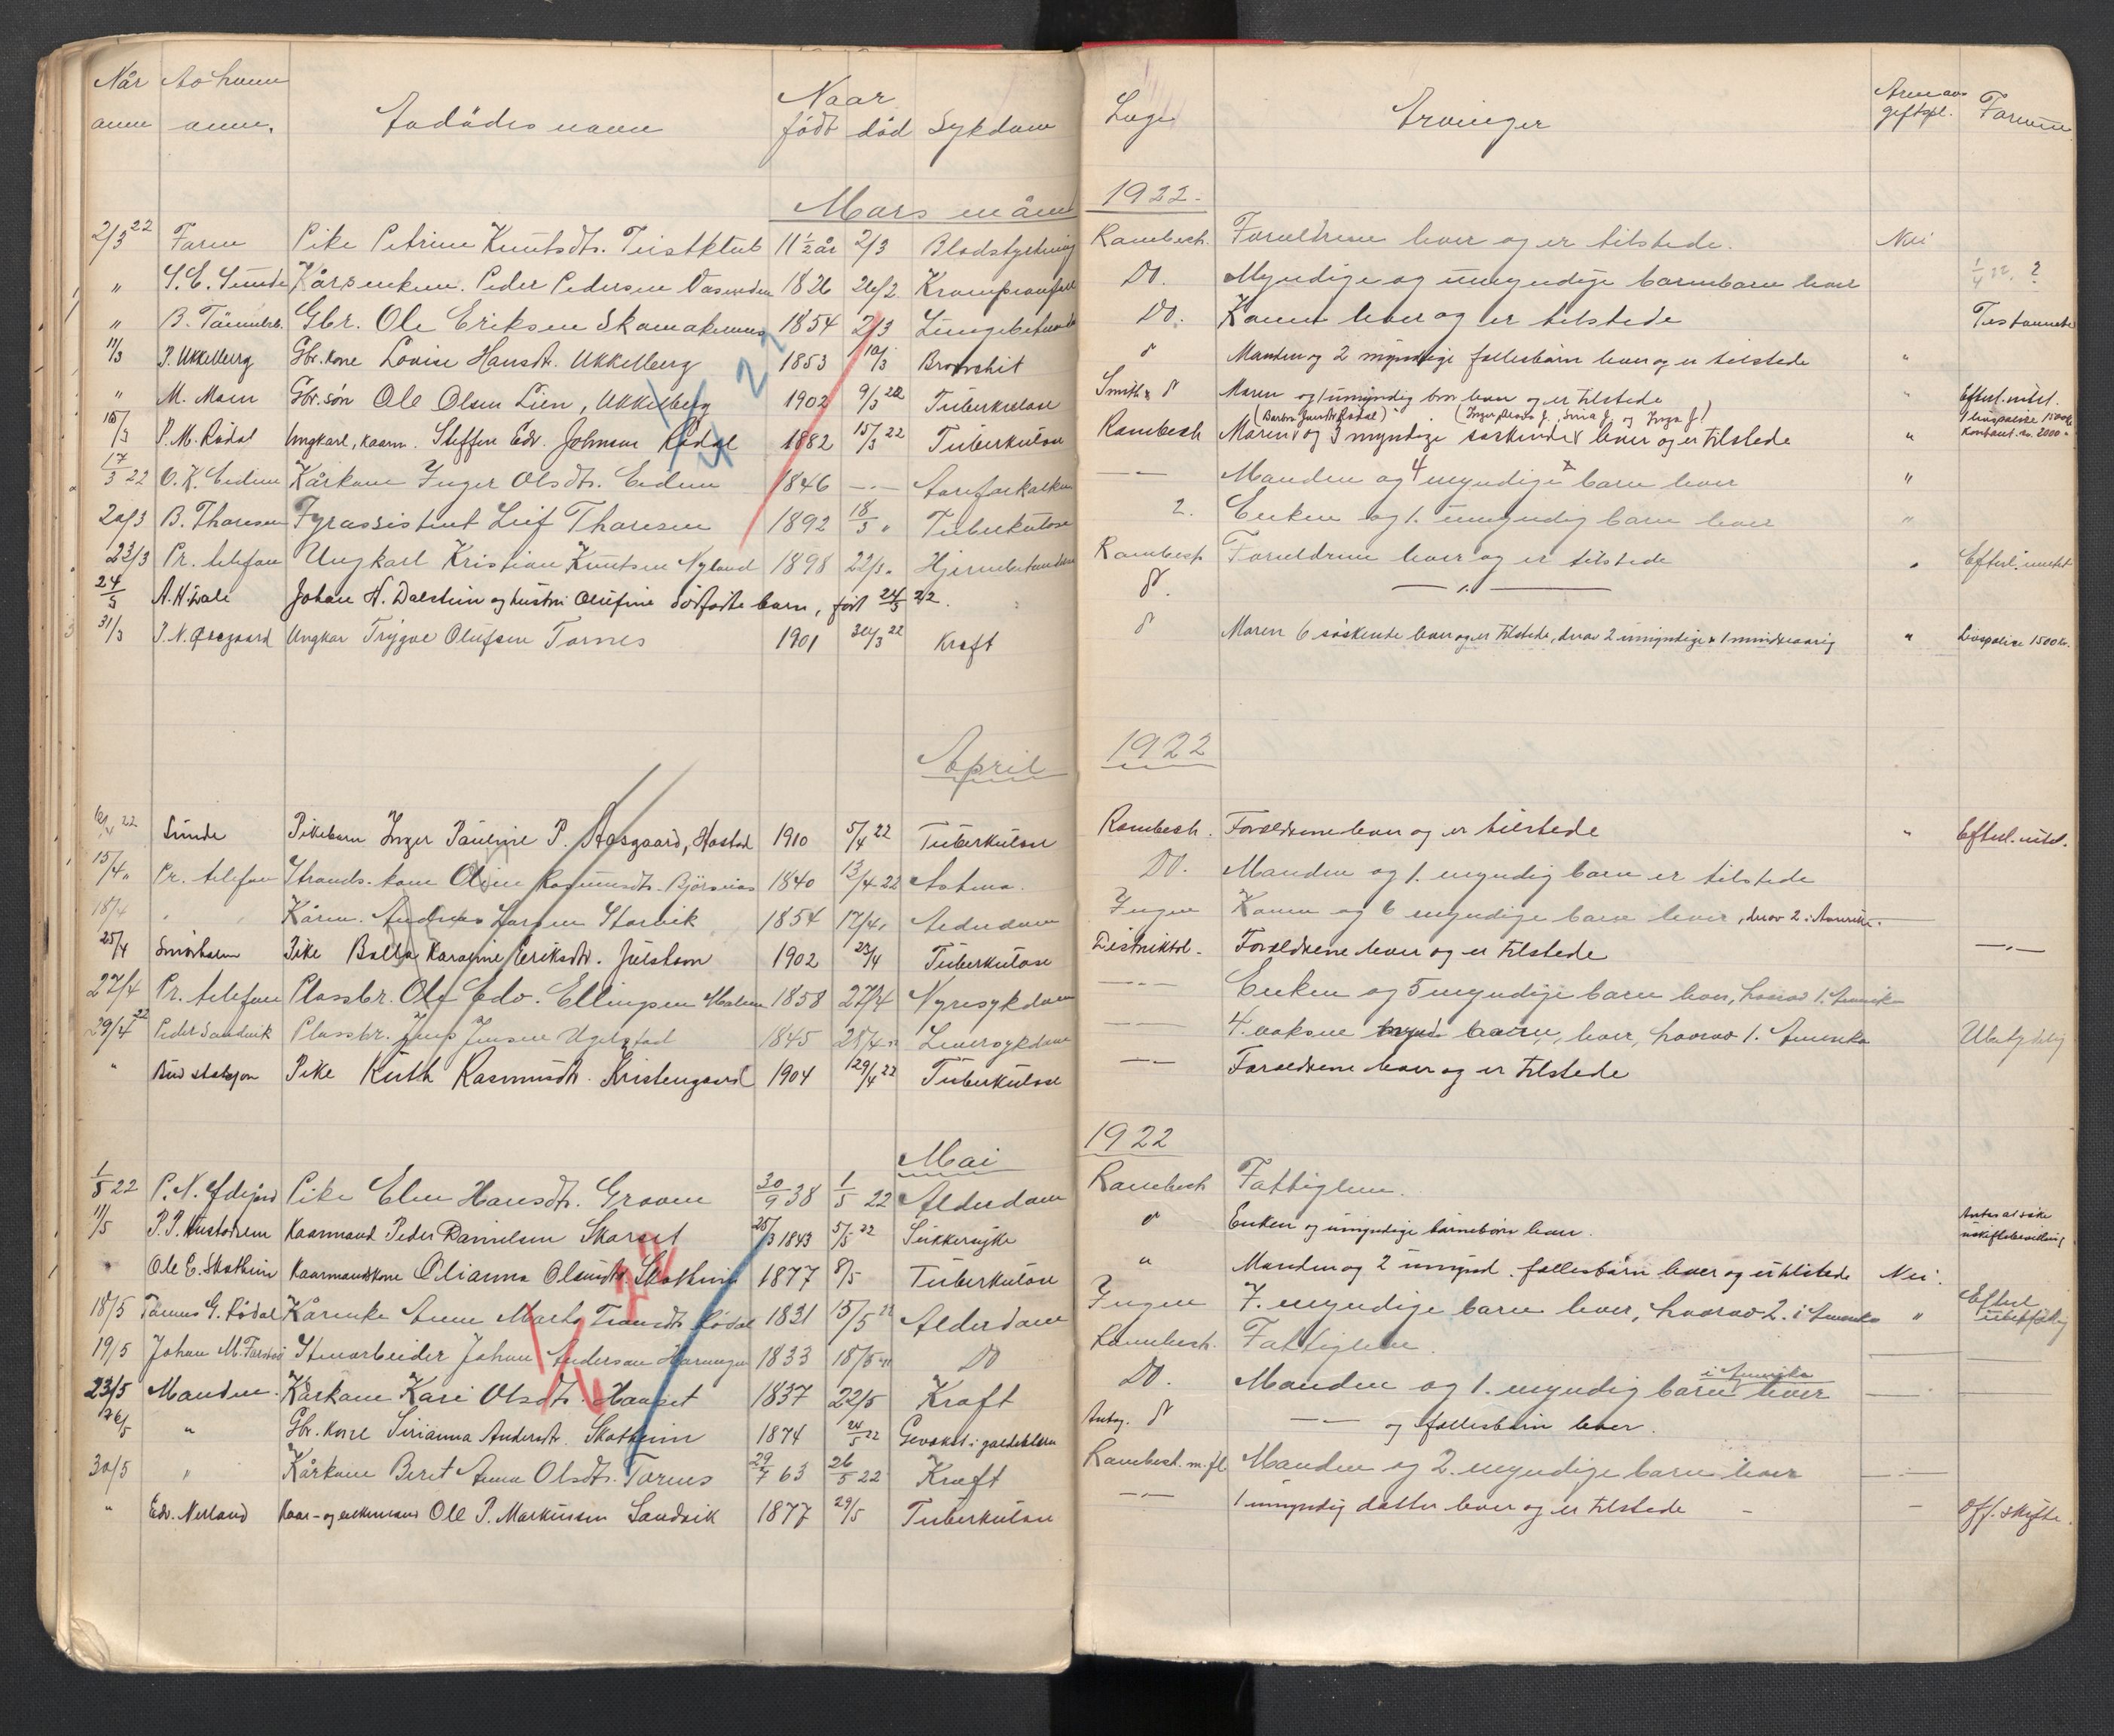 Når Av hvem Naar Læge Arveavg
anm anm. Avdødes navn født død Sykdom Arvinger giftspl. Formue
Mars måned 1922.
2/3 22 Faren Pike Petrine Knutsdtr. 11½ år 2/3 Blodstyrtning Rambech. Forældrene lever og er tilstede. Nei
" S. E. Sunde Kårenken. Peder Pedersen 1826 26/2 Krampeanfall Do. Myndige og umyndige barnebarn lever 1/4 22. ?
" B. Gbr. Ole Eriksen 1854 2/3 Lungebetændelse Do. Konen lever og er tilstede Testamente
11/3 P. Ukkelberg Gbr. kone Lovise Hansdtr. Ukkelberg 1853 10/3 Bronchit d Manden og 2 myndige fællesbørn lever og er tilstede "
" M. Moen Gbr. søn Ole Olsen Lien, Ukkelberg 1902 9/3 22 Tuberkulose Smith & d Moren og 1 umyndig bror lever og er tilstede " Efterl. uvist.
16/3 P. M. Rödal Ungkarl, kaarm. Steffen Edv. Johnsen Rödal 1882 15/3 22 Tuberkulose Rambech Moren og 3 myndige søskende lever og er tilstede " 1 livspolise 1500 kr Kontant kr. 2000 -
17/3 22 O. K. Eidem Kårkone Inger Olsdtr. Eidem 1846 -"- Aareforkalkn -"- Manden og 4 myndige barn lever "
20/3 B. Thoresen Fyrassistent Leif Thoresen 1892 18/3 " Tuberkulose 2. Enken og 1. umyndig barn lever "
23/3 Pr. telefon Ungkarl Kristian Knutsen Nyland 1898 22/3 " Hjernebetændelse Rambech Forældrene lever og er tilstede " Efterl. intet
24/3 A. H. Dale Johan H. Dalsheim og hustru Olufine dødfødte barn, født 24/3 22. d. -"-
31/3 P. N. Ungkar Trygve Olufsen Tornes 1901 30/3 22 Kræft d Moren 6 søskende lever og er tilstede, derav 2 umyndige & 1 mindreaarig " Livspolise 1500 kr.
April 1922
6/4 22 Sunde Pikebarn Inger Pauline P. Aasgaard, Hostad 1910 5/4 22 Tuberkulose Rambech. Forældrene lever og er tilstede " Efterl. intet.
15/4 " Pr. telefon Strands. kone Oline Rasmusdtr. Björsnos 1840 13/4 22 Astma. Do. Manden og 1. myndig barn er tilstede
18/4 " " Kårm. Andreas Larsen Storvik 1854 17/4 " Alderdom Ingen Konen og 6 myndige barn lever, derav 2 i Amerika.
25/4 Pike Bolla Karoline Eriksdtr. Julshavn 1902 23/4 Tuberkulose Distriktsl. Forældrene lever og er tilstede -"-
27/4 Pr. telefon Plassbr. Ole Edv. Ellingsen Malmen 1858 27/4 Nyresykdom -"- Enken og 5 myndige barn lever, hvorav 1. Amerika
29/4 22 Peder Sandvik Plassbr. Jens Jensen Ugelstad 1845 28/4 " Leversykdom -"- 4. voksne barn, lever, hvorav 1. Amerika Ubetydelig
" Bud statsjon Pike Ruth Rasmusdtr. Kristengaard 1904 29/4 22 Tuberkulose -"- Forældrene lever og er tilstede
Mai 1922
1/5 22 P. N. Pike Elen Hansdtr. Groven 30/9 38 1/5 22 Alderdom Rambech Fattiglem.
11/5 P. P. Kaarmand Peder Danielsen Skarset 25/3 1843 5/5 22 Sukkersyke d Enken og umyndige barnebörn lever. Antas at söke uskiftebevilling
" Ole E. Skotheim Kaarmandskone Olianna Olsdtr. Skotheim 1877 8/5 Tuberkulose " Manden og 2 umynd. fællesbörn lever og er tilstede Nei.
18/5 G. Rödal Kårenke Anne Marta Rödal 1831 15/5 22 Alderdom Ingen 7. myndige barn lever, hvorav 2. i Amerika " Efterl. ubetydelig
19/5 Johan M. Farstad Stenarbeider Johan Andersen 1833 18/5 " Do Rambech. Fattiglem.
23/5 Manden. Kårkone Kari Olsdtr. Hauset 1837 22/5 Kræft Do. Manden og 1. myndig barn i Amerika lever
26/5 " Gbr. kone Sirianna Andersdtr. Skotheim 1874 24/5 22 Gevækst i galdeblæren Antag. d -"- og fællesbörn lever.
30/5 " Kårkone Beret Anna Olsdtr. Tornes 29/7 63 26/5 22 Kræft Rambech. m. fl Manden og 2. myndige barn lever
" Edv. Nerland Kaar- og enkemand Ole P. Markussen Sandvik 1877 29/5 Tuberkulose -"- 1 umyndig datter lever og er tilstede - Off. skifte.